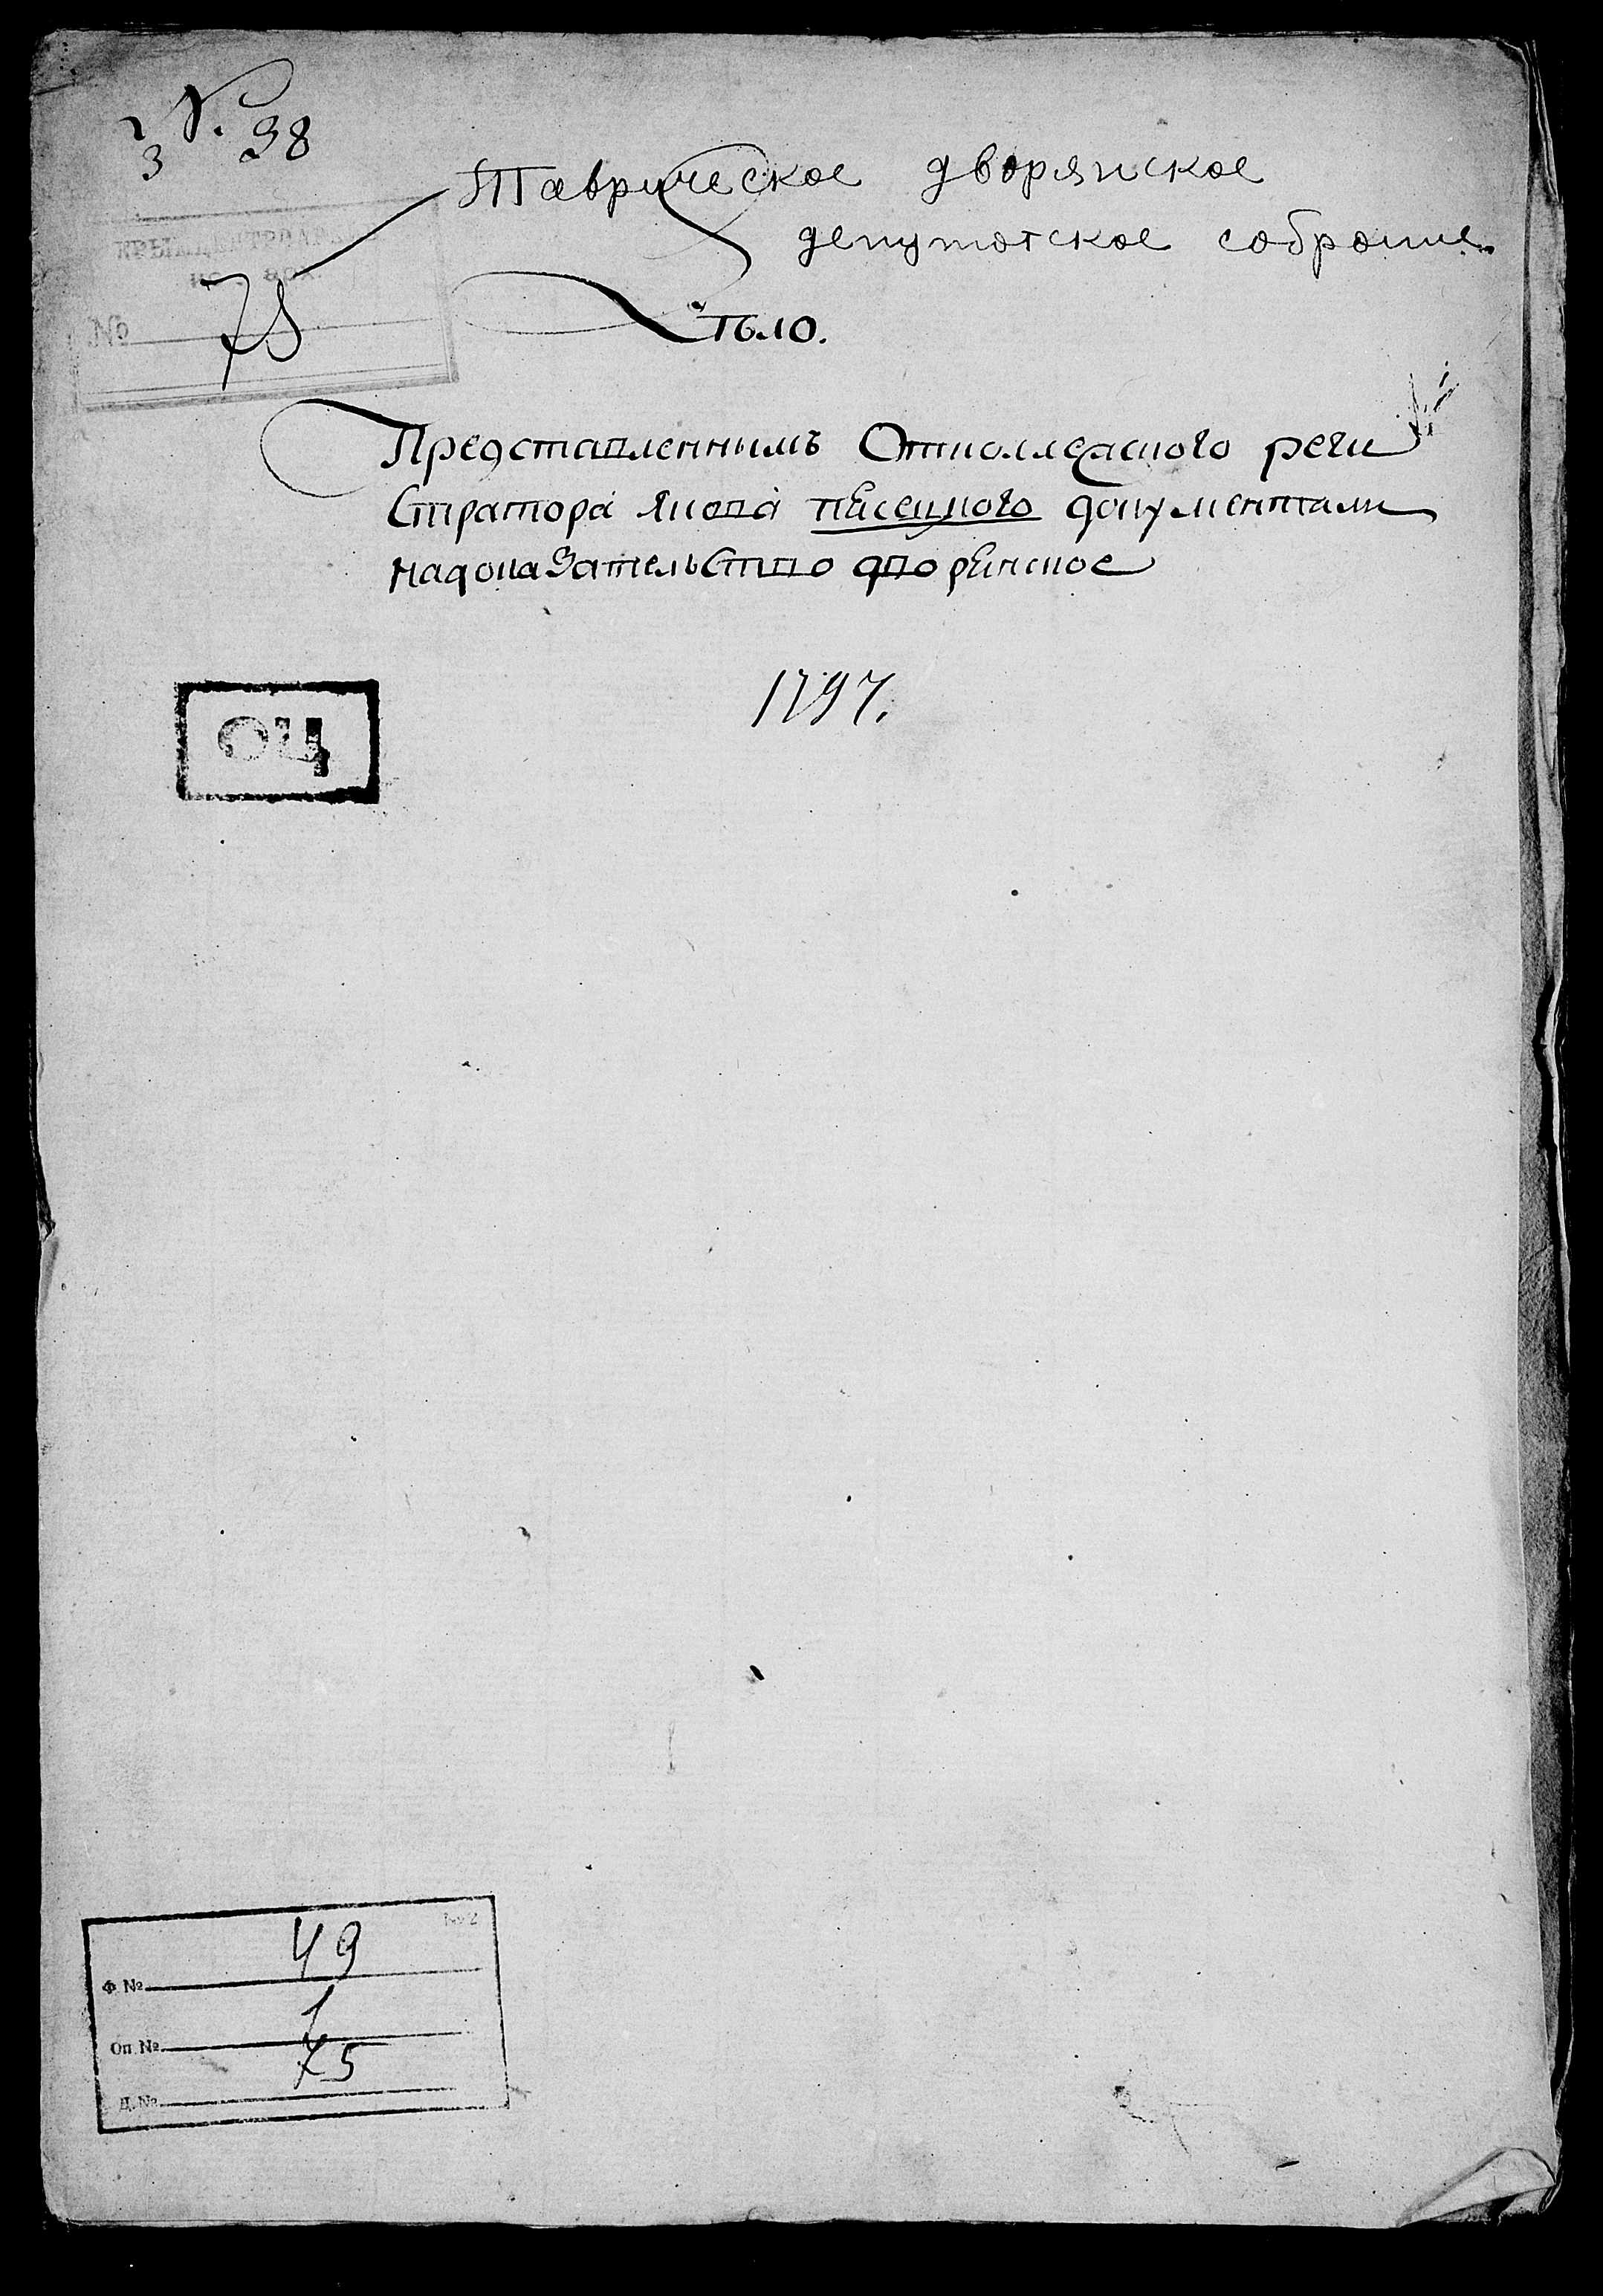 № 38
2
3
Таврическое дворянское
депутатское собрание
КРЫМЦЕНТРАРХИВ
№ 75
Дѣло.
Представленнымъ Отколлежского реги
Стратора Якова песецкого документами
надоказательство дворянское
1797.
ОЦ
№ 2
Ф. № 49
Оп. № 1
Д. № 75